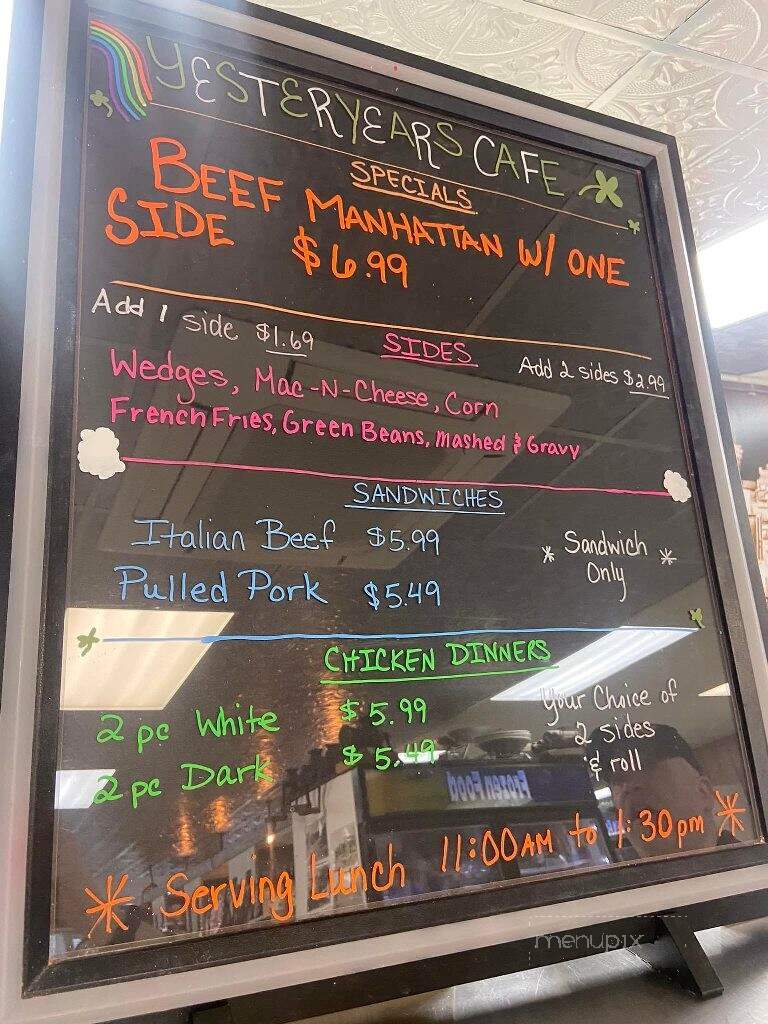 YESTERYEARS CAFE
SPECIALS
BEEF MANHATTAN W/ ONE
SIDE $6.99
Add 1 side $1.69
SIDES
Add 2 sides $2.99
Wedges, Mac-N-Cheese, Corn
French Fries, Green Beans, Mashed & Gravy
SANDWICHES
Italian Beef $5.99
Pulled Pork $5.49
* Sandwich *
Only
CHICKEN DINNERS
2 pc White $5.99
2 pc Dark $5.49
Your Choice of
2 sides
& roll
* Serving Lunch 11:00AM to 1:30pm *
Frozen Food
menupix